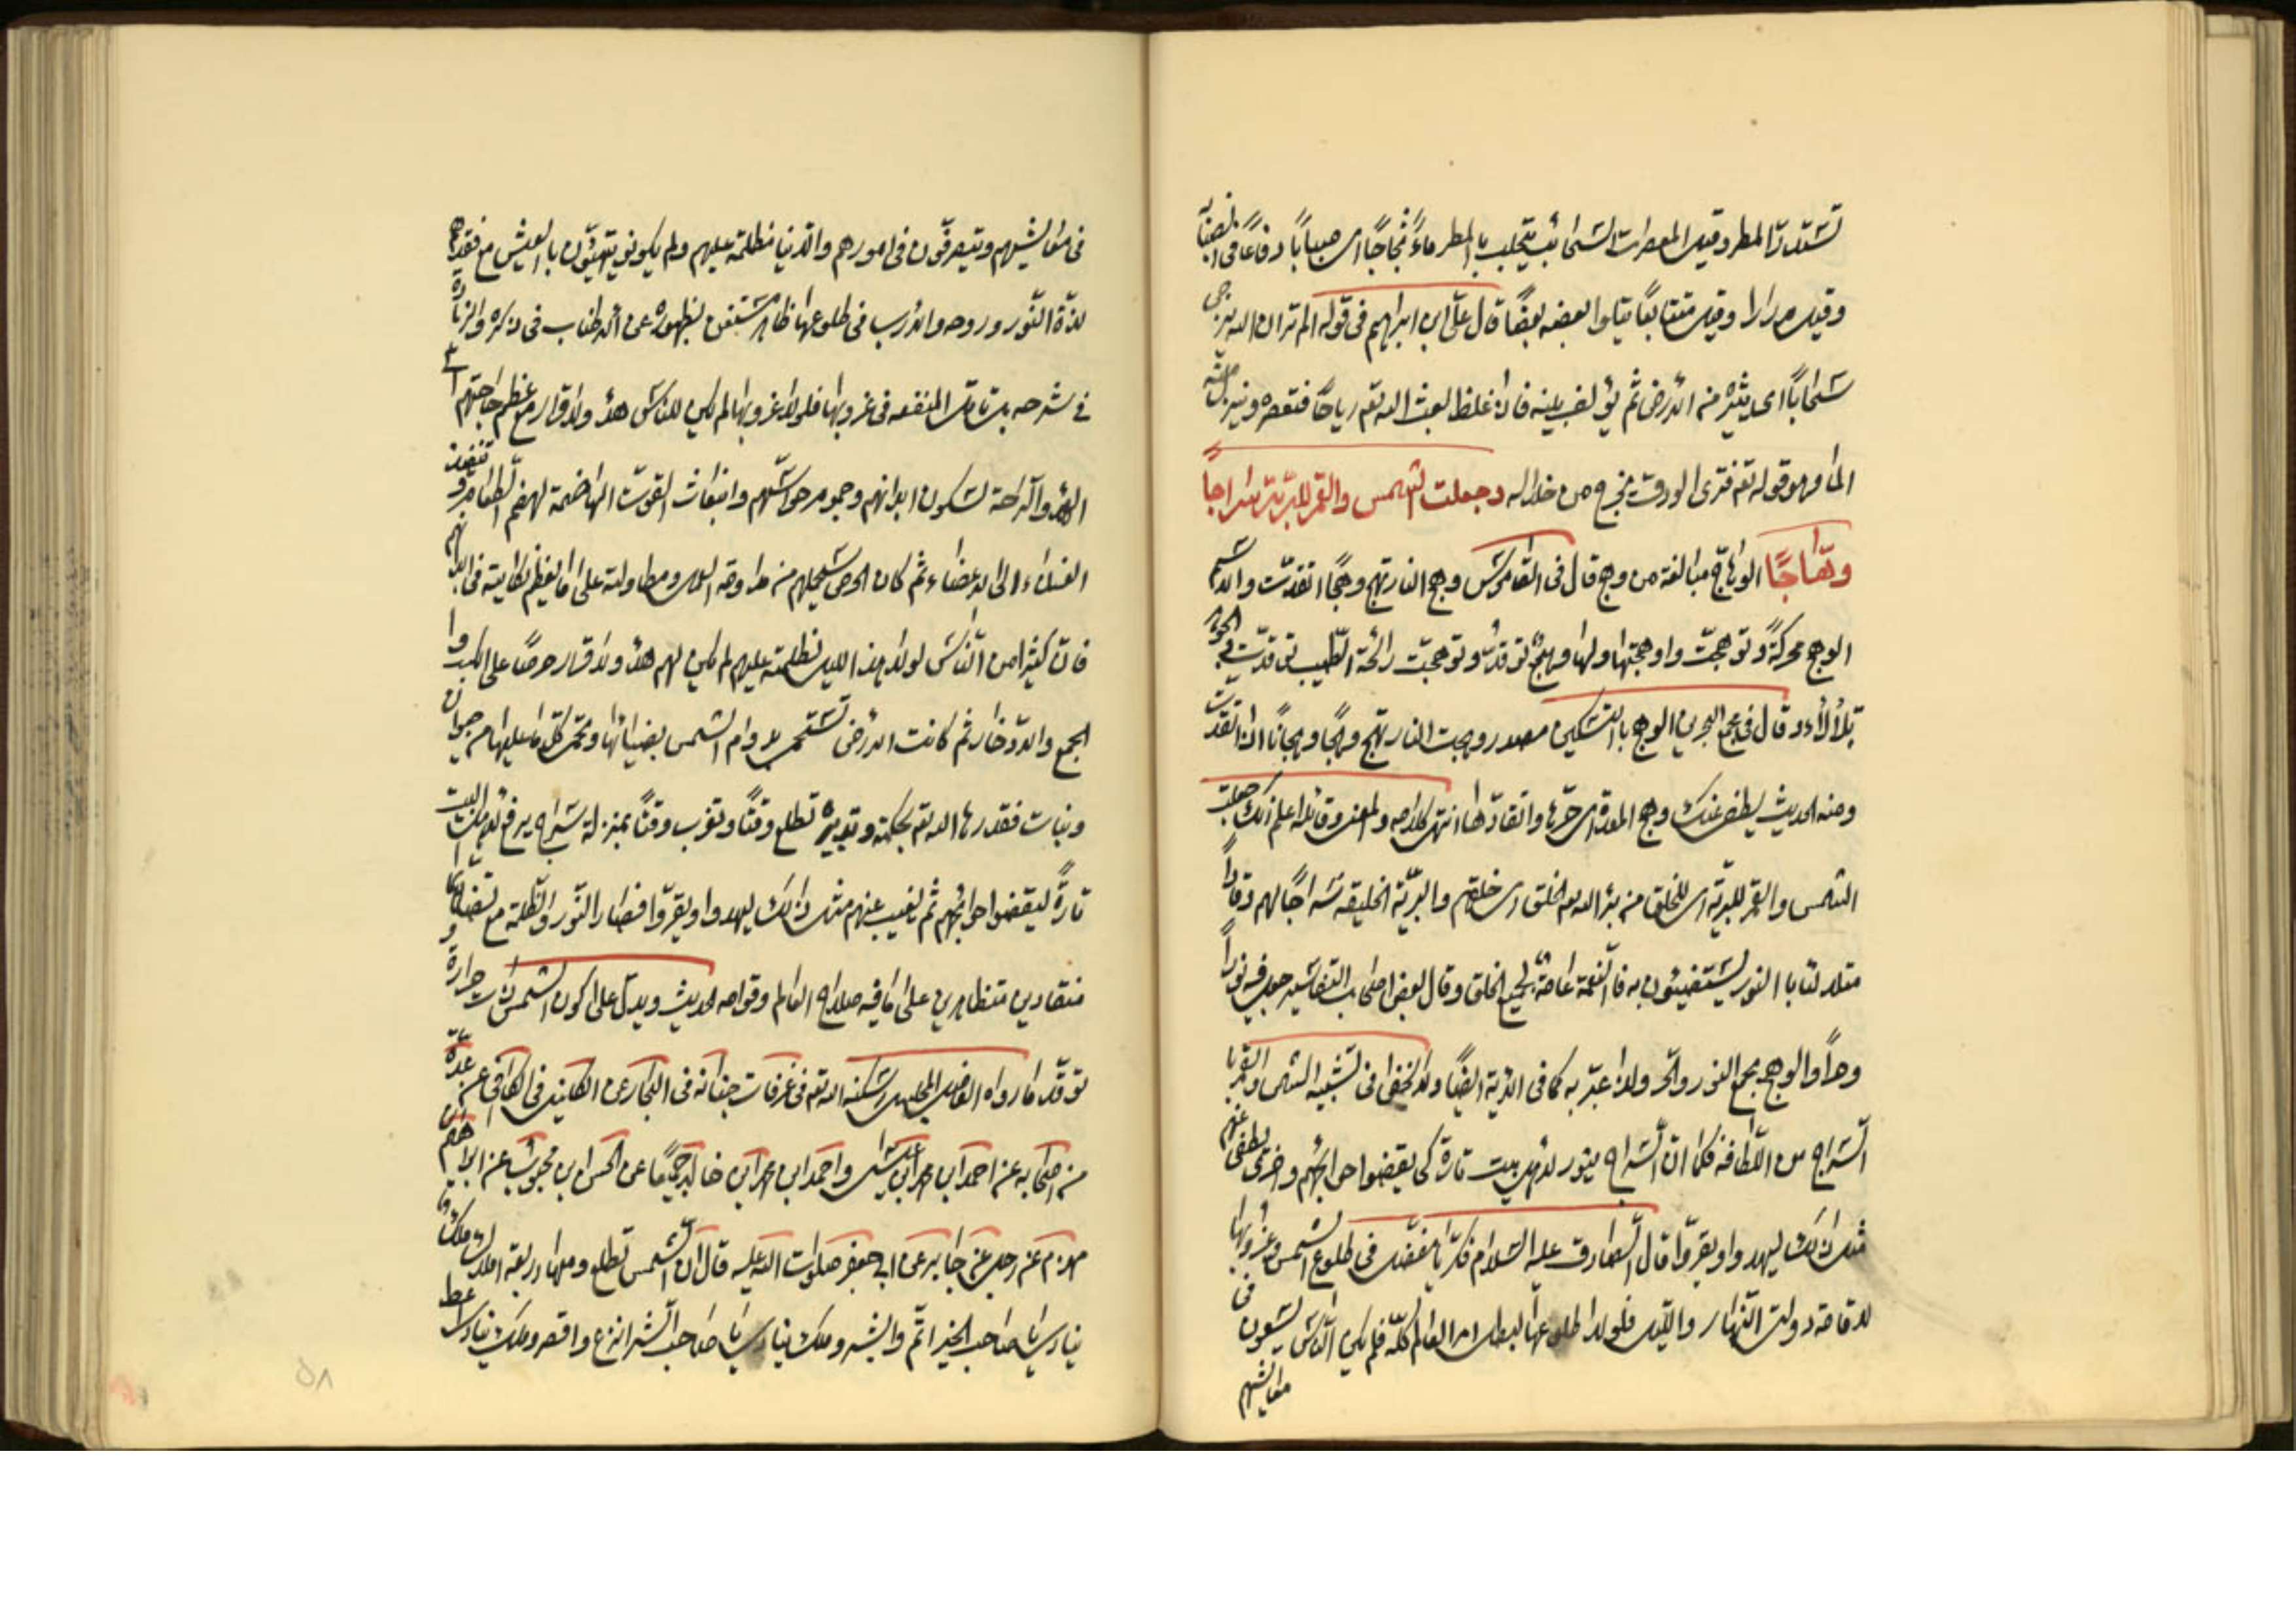 تستدر المطر وقيل المعصرات السحائب يتحلب بالمطر ماءً ثجاجًا اى صبابًا دفاعًا فى انصبابه
وقيل مدرارا وقيل متتابعًا يتلوا بعضه بعضًا قال على ابن ابراهيم فى قوله الم تر ان الله يزجى
سحابًا اى يثيره من الأرض ثم يؤلف بينه فاذا غلظ بعث الله تعم رياحًا فتعصره فينزل منه
الماء وهو قوله تعم فترى الودق يخرج من خلاله وجعلت الشمس والقمر للبريّة سراجًا
وهّاجًا الوهاج مبالغة من وهج قال فى القاموس وهج النار تهج وهجًا اتقدت والاسم
الوهج محركةً وتوهجت واوهجتها ولها وهيج توقد وتوهجت رائحة الطيب توقدت والجوهر
تلألأ وقال فى مجمع البحرين الوهج بالتسكين مصدر وهجت النار تهج وهجًا ووهجانًا اذا اتقدت
ومنه الحديث يطفى عنك وهج المعدة اى حرّها واتقادها انتهى كلامه والمعنى وقائله اعلم انك جعلت
الشمس والقمر للبريّة اى للخلق من برأ الله الخلق اى خلقهم والبريّة الخليقه سراجًا لهم وقادًا
متلألئا بالنور يستضيئون به فالنعمة عامة لجميع الخلق وقال بعض اصحاب التفاسير جعل فيه نورًا
وحرًا والوهج يجمع النور والحر ولذا عبّر به كما فى الآية ايضًا ولا يخفى ما فى تشبيه الشمس والقمر با
السّراج من اللّطافه فكما انّ السّراج ينور لأهل بيت تارة كى يقضوا حوائجهم واخرى يطفى عنهم
مثل ذلك ليهدوا ويقرّوا قال الصّادق عليه السّلام فكّر يا مفضل فى طلوع الشمس وغروبها
لاقامة دولتى النّهار واللّيل فلولا طلوعها لبطل امر العالم كلّه فلم يكن النّاس يسعون فى
معايشهم
فى معايشهم ويتصرّفون فى امورهم والدّنيا مظلمة عليهم ولم يكونوا يتهنّؤن بالعيش مع فقدهم
لذّة النّور وروحه والأرب فى طلوعها ظاهر مستغن بظهوره عن الاطناب فى ذكره والزيادة
فى شرحه بل تامّل المنفعه فى غروبها فلولا غروبها لم يكن للناس هدأ ولا قرار مع عظم حاجتهم الى
الهدؤ والرّاحة لسكون ابدانهم وجموم حواسّهم وانبعاث القوّت الهاضمة لهضم الطعام وتنفيذ
الغذاء الى الاعضاء ثم كان الحرص سيحملهم من مداومة العمل ومطاولته على ما يعظم نكايته فى ابدانهم
فانّ كثيرا من النّاس لولا جثوم هذا الليل بظلمته عليهم لم يكن لهم هدأ ولا قرار حرصًا على الكسب و
الجمع والادّخار ثم كانت الأرض تستحمى بدوام الشمس بضيائها وتحمى كلّ ما عليها من حيوان
ونبات فقدرها الله تعم بحكمته وتدبيره تطلع وقتًا وتغرب وقتًا بمنزلة سراج يرفع لاهل البيت
تارةً ليقضوا حوائجهم ثم يغيب عنهم مثل ذلك ليهدوا ويقرّوا فصار النّور والظّلمة مع تضادّهما
منقادين متظاهرين على ما فيه صلاح العالم وقوامه الحديث ويدلّ على كون الشمس ذات حرارة و
توقّد ما رواه الفاضل المجلسى اسكنه الله تعم فى غرفات جنانه فى البحار عن الكلينى فى الكافى عن عدّة
من اصحابه عن احمد ابن محمد ابن عيسى واحمد ابن محمد ابن خالد جميعًا عن الحسن ابن محبوب عن ابراهيم ابن
مهزم عن رجل عن جابر عن ابى جعفر صلوات الله عليه قال ان الشمس تطلع ومعها اربعة املاك ملك
ينادى يا صاحب الخير اتمّ وابشر وملك ينادى يا صاحب الشر انزع واقصر وملك ينادى اعط
٥٨